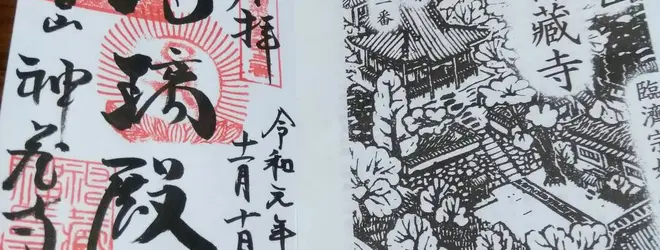 臨濟宗
藏寺
一番
拝
令和元年
十一月十日
璃殿
山神蔵寺